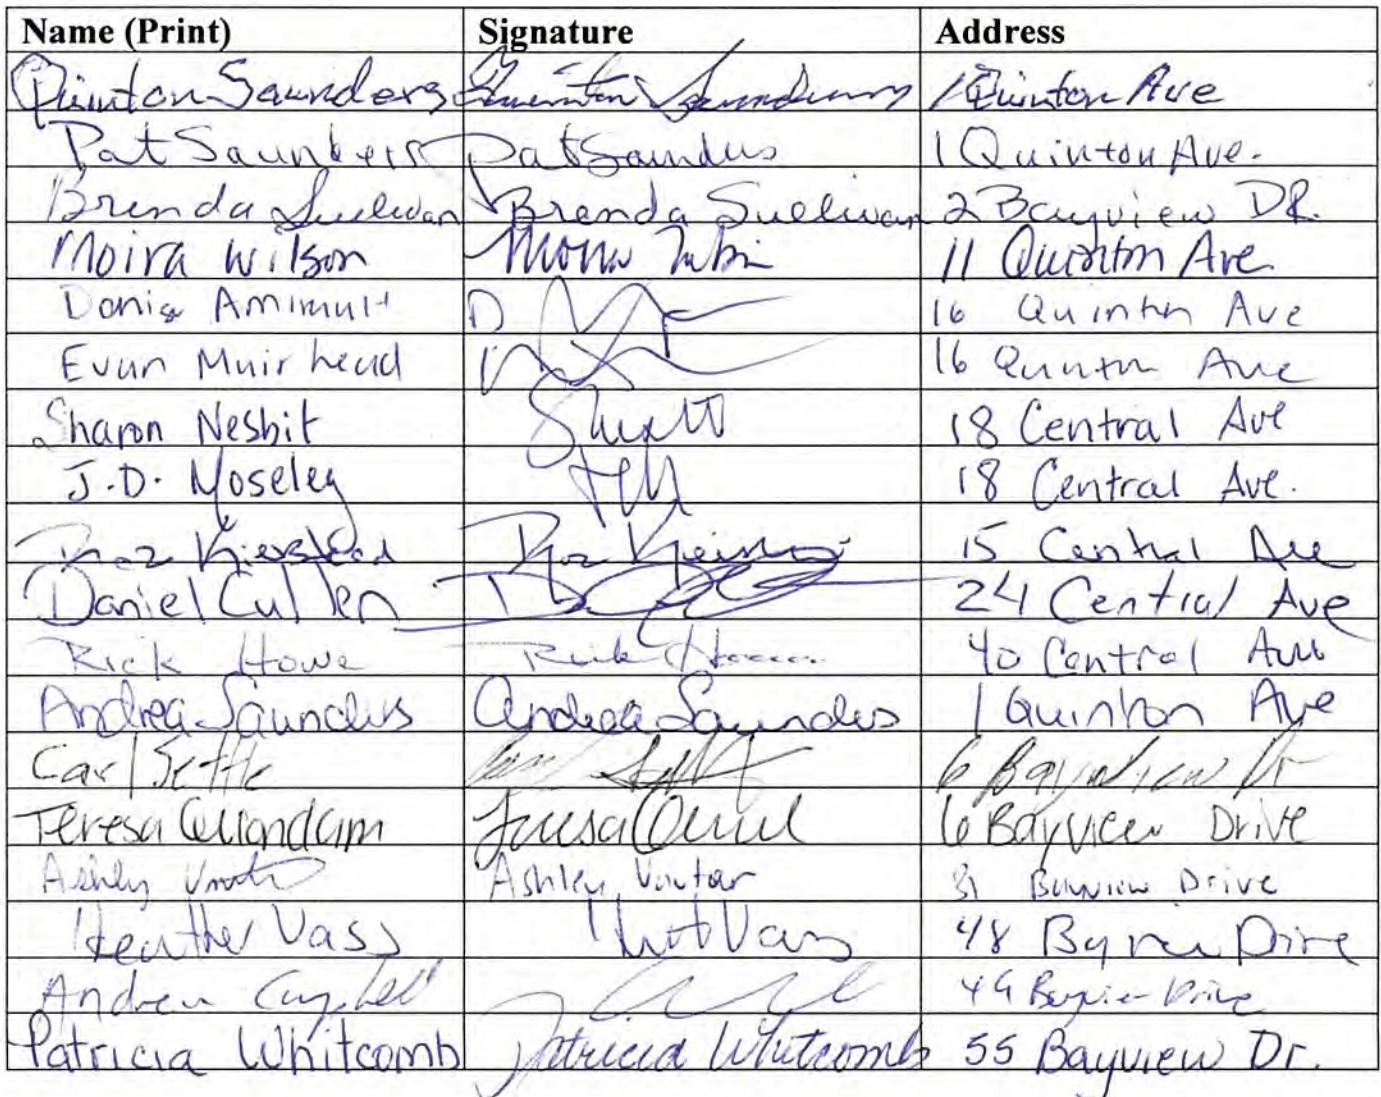 Name (Print) Signature Address
Quinton Saunders Quinton Saunders 1 Quinton Ave
Pat Saunders Pat Saunders 1 Quinton Ave.
Brenda Sullivan Brenda Sullivan 2 Bayview DR.
Moira Wilson Moira 11 Quinton Ave.
Amirault D 16 Quinton Ave
Evan Muirhead 16 Quinton Ave
Sharon Nesbit 18 Central Ave
J.D. Moseley 18 Central Ave.
Roz Kierstead Roz 15 Central Ave
Daniel Cullen D 24 Central Ave
Rick Howe Rick Howe 40 Central Ave
Andrea Saunders Andrea Saunders 1 Quinton Ave
Carl Settle Carl Settle 6 Bayview Dr
Teresa Teresa 6 Bayview Drive
Ashley Ashley 31 Bayview Drive
Heather Vass Vass 48 Bayview Drive
Andrew Campbell 49 Bayview Drive
Patricia Whitcomb Patricia Whitcomb 55 Bayview Dr.